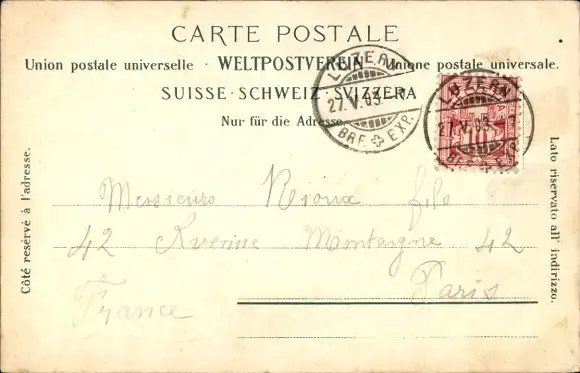 CARTE POSTALE
Union postale universelle · WELTPOSTVEREIN · Unione postale universale.
SUISSE · SCHWEIZ · SVIZZERA
Nur für die Adresse.
LUZERN
27.V.03.
BRF. EXP.
LUZERN
27.V.03.
BRF. EXP.
10
Côté resérvé à l'adresse.
Lato riservato all' indirizzo.
Messieurs Rioux fils
42 Avenue Montaigne 42
Paris
France